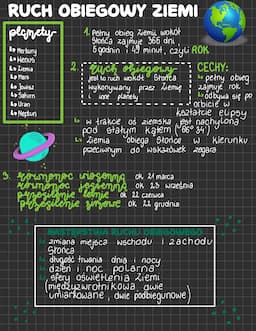 RUCH OBIEGOWY ZIEMI
planety
↳ Merkury
↳ Wenus
↳ Ziemia
↳ Mars
↳ Jowisz
↳ Saturn
↳ Uran
↳ Neptun
1. Pełny obieg Ziemi wokół
Słońca zajmuje 365 dni
5 godzin i 49 minut, czyli ROK
2. ruch obiegowy
jest to ruch wokół Słońca
wykonywany przez Ziemię
i inne planety
CECHY:
↳ pełny obieg
zajmuje rok
↳ odbywa się po
orbicie w
kształcie elipsy
↳ w trakcie oś ziemska jest nachylona
pod stałym kątem (66° 34')
↳ Ziemia obiega Słońce w kierunku
przeciwnym do wskazówek zegara
3. równonoc wiosenna ok 21 marca
równonoc jesienna ok 23 września
przesilenie letnie ok 22 czerwca
przesilenie zimowe ok 22 grudnia
NASTĘPSTWA RUCHU OBIEGOWEGO
↳ zmiana miejsca wschodu i zachodu
Słońca
↳ długość trwania dnia i nocy
↳ dzień i noc polarna
↳ sfery oświetlenia Ziemi
(międzyzwrotnikowa, dwie
umiarkowane, dwie podbiegunowe)